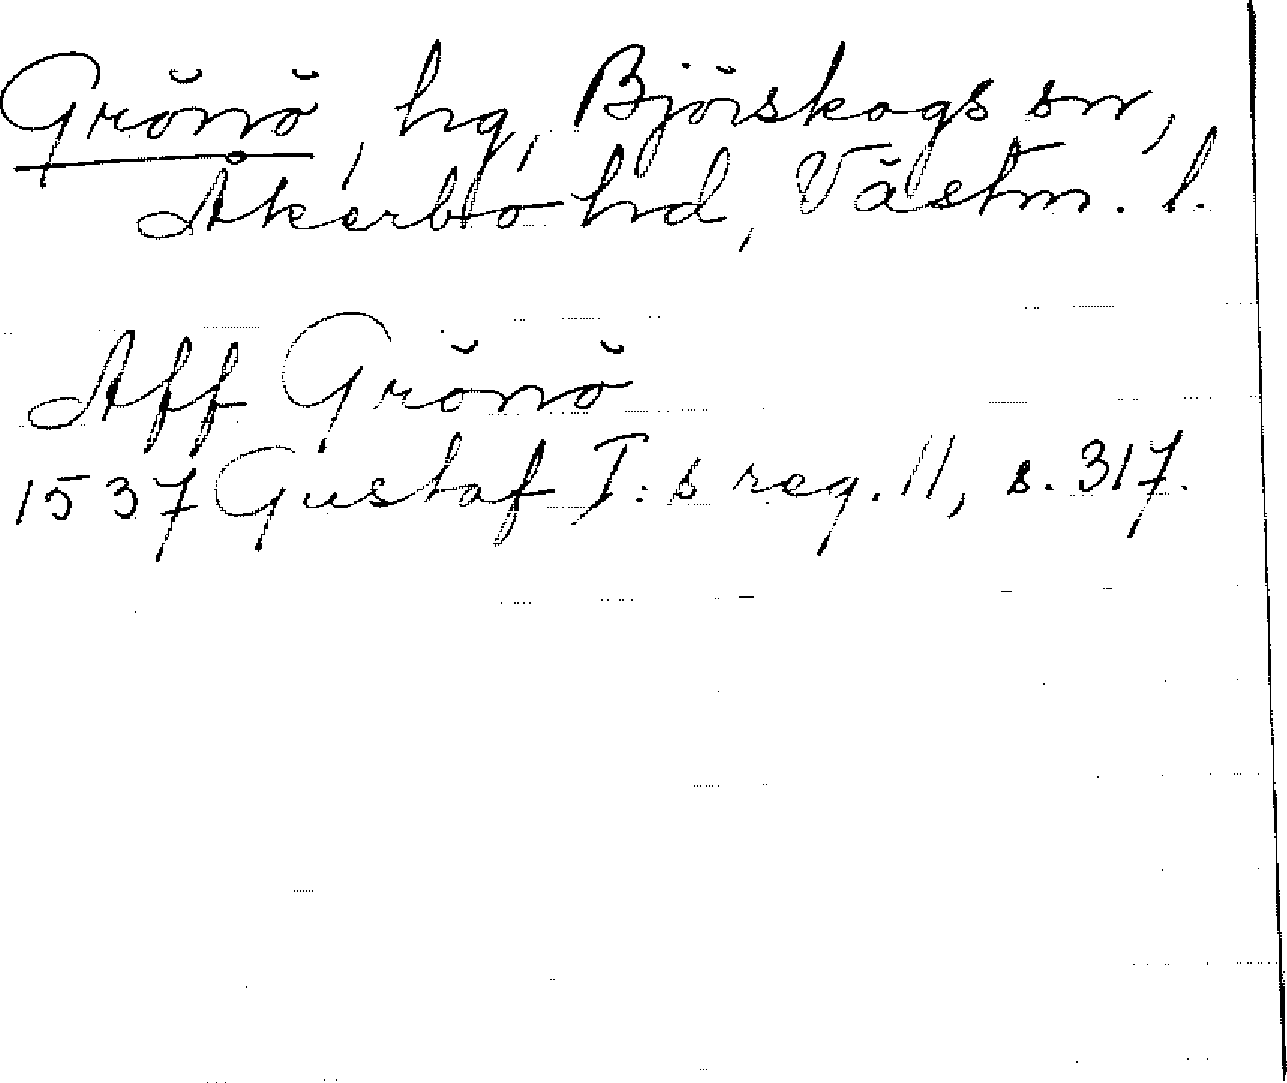 Grönö, hg, Björskogs sn,
Åkerbo hd, Västm. l.
Aff Grönö
1537 Gustaf I: s reg. 11, s. 317.